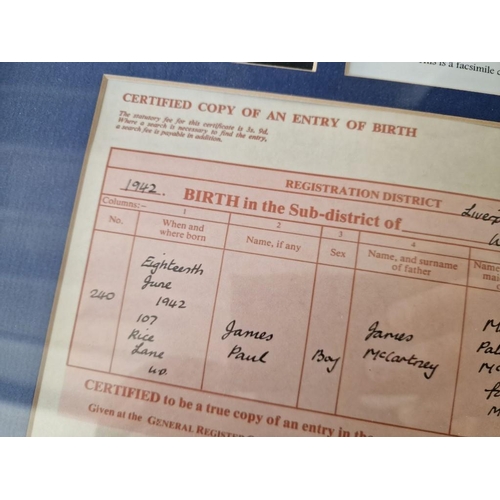 This is a facsimile
CERTIFIED COPY OF AN ENTRY OF BIRTH
The statutory fee for this certificate is 3s. 9d.
Where a search is necessary to find the entry,
a search fee is payable in addition.
REGISTRATION DISTRICT
1942. BIRTH in the Sub-district of
Columns:— 1 2 3 4
No. When and where born Name, if any Sex Name, and surname of father
240
Eighteenth
June
1942
107
Rice
Lane
James
Paul
Boy
James
McCartney
CERTIFIED to be a true copy of an entry in the
Given at the GENERAL REGISTER